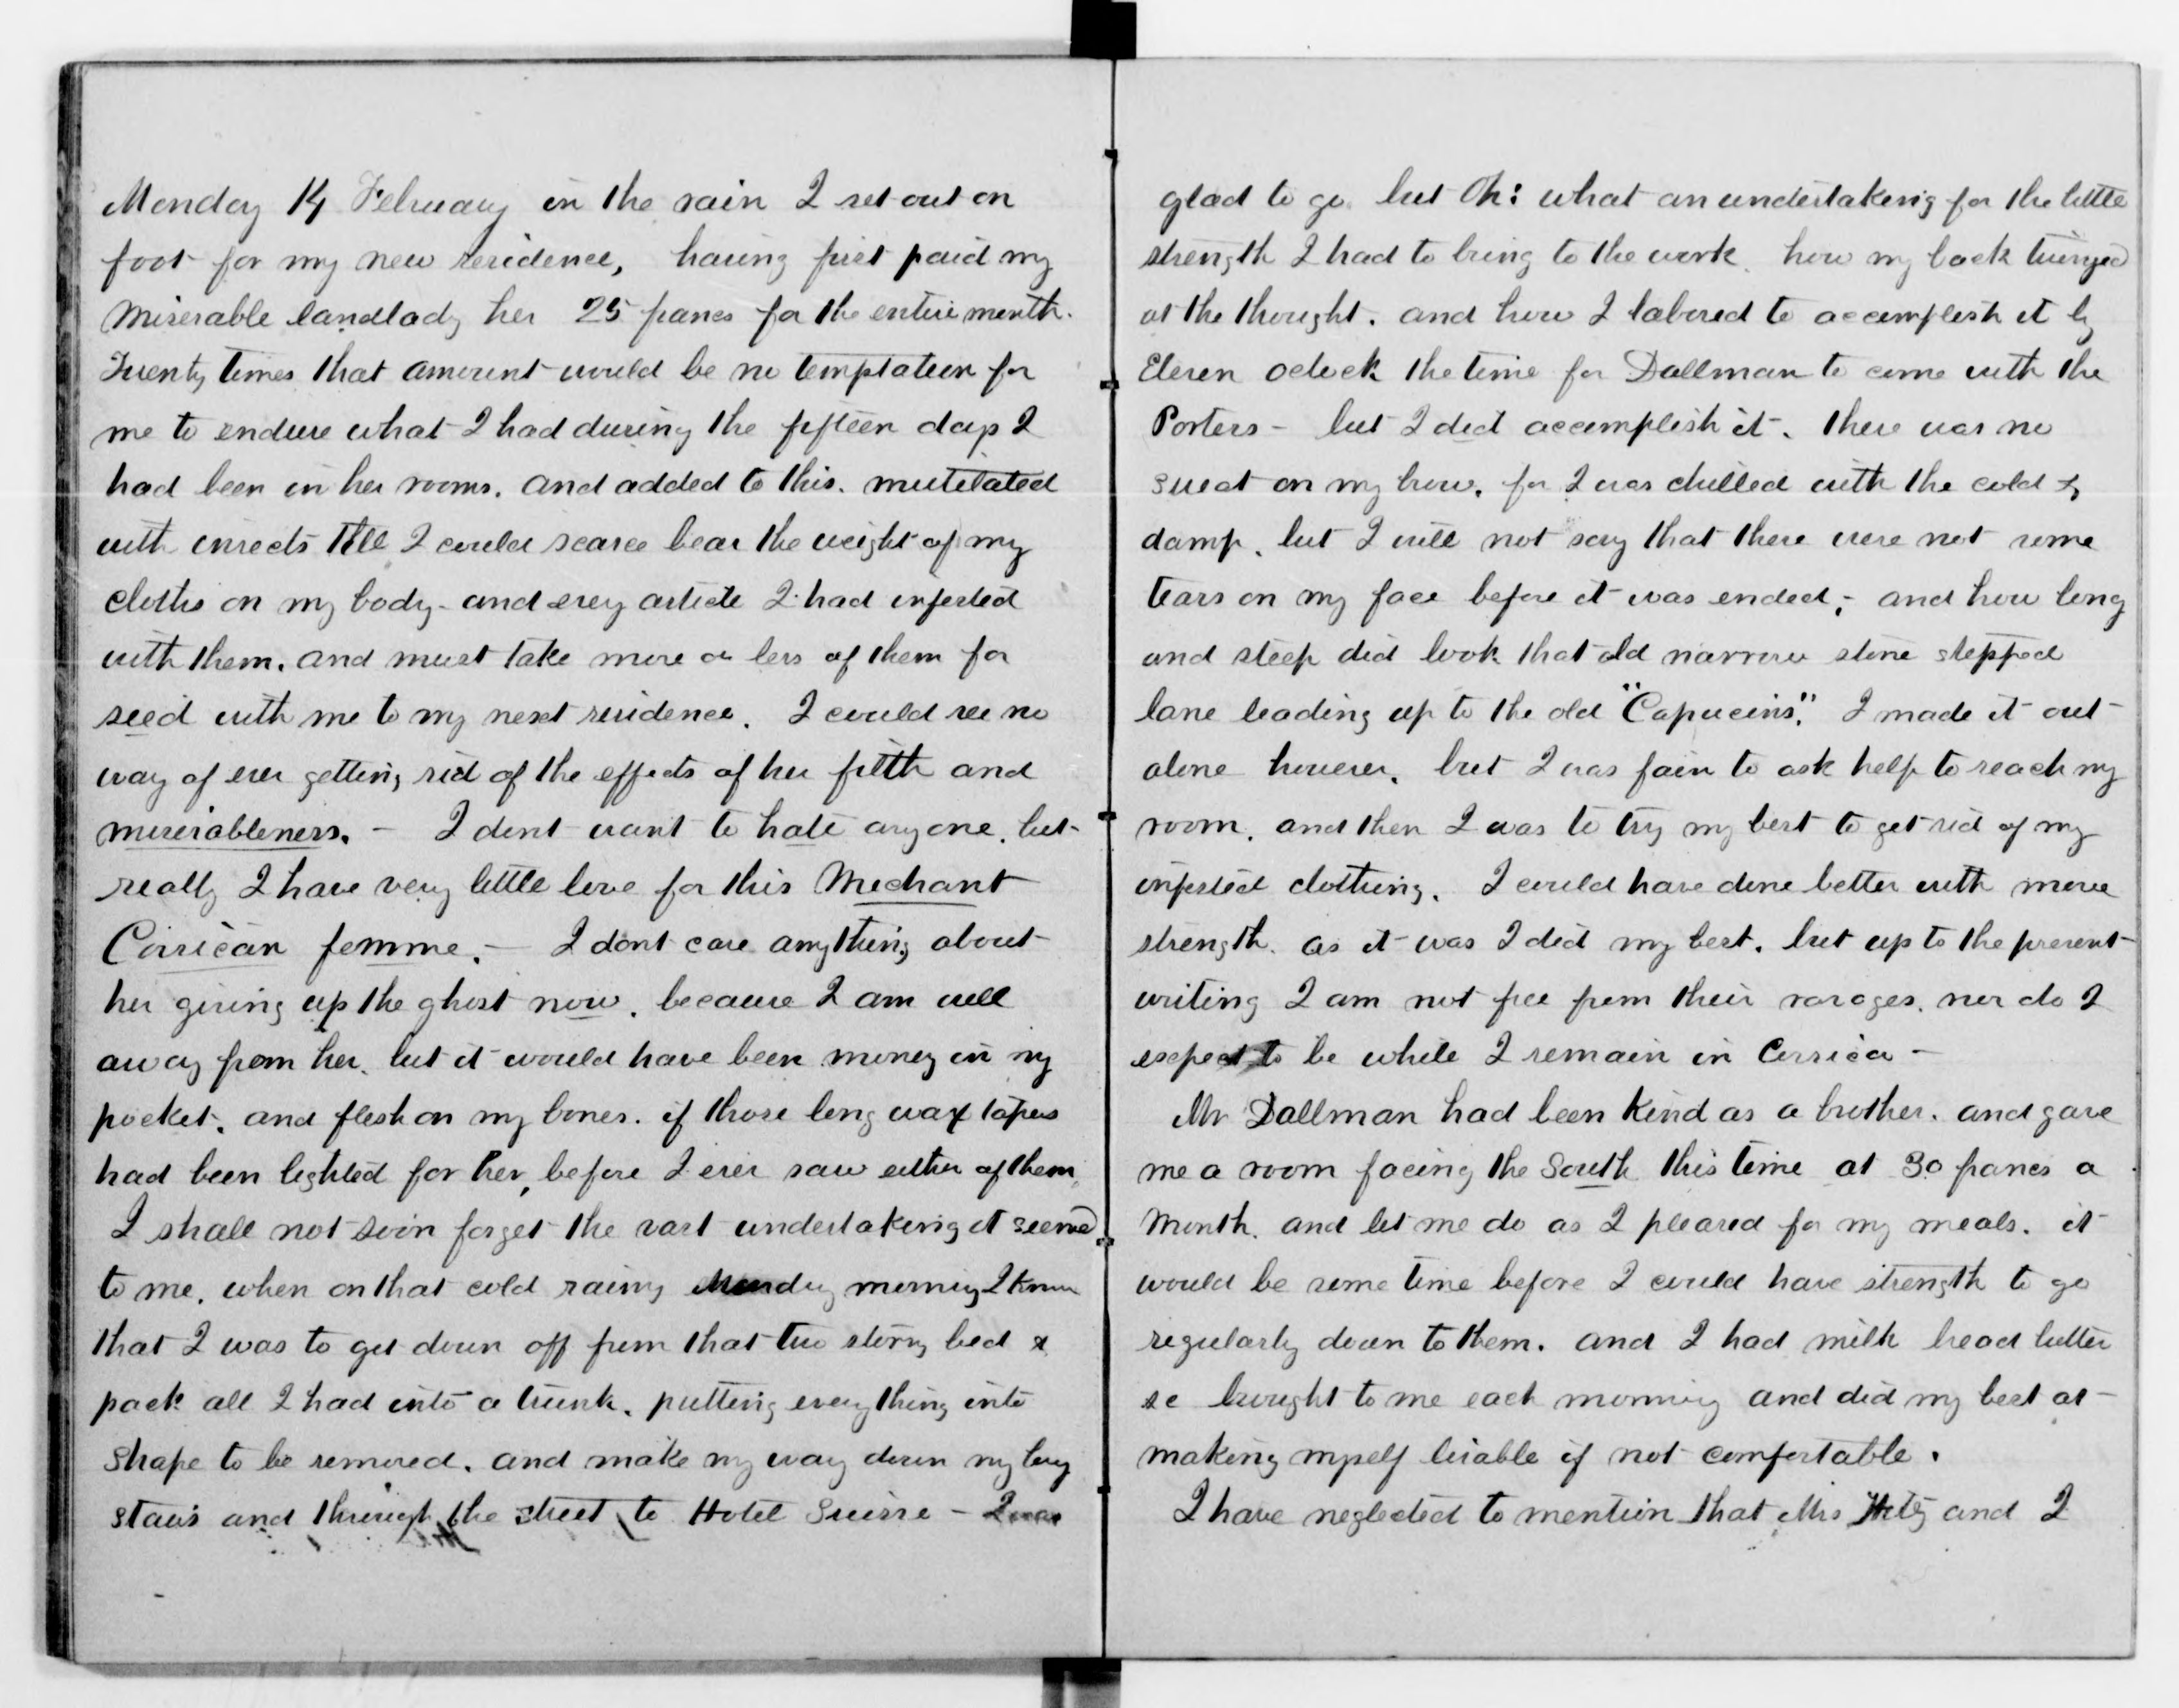 Monday 14 February in the rain I set out on
foot for my new residence, having first paid my
miserable landlady her 25 francs for the entire month.
Twenty times that amount would be no temptation for
me to endure what I had during the fifteen days I
had been in her rooms. and added to this. mutilated
with insects till I could scarce bear the weight of my
cloths on my body - and every article I had infested
with them. and must take more or less of them for
seed with me to my next residence. I could see no
way of ever getting rid of the effects of her filth and
miserableness. - I dont want to hate any one. but
really I have very little love for this Mechant
Corsican femme. - I dont care anything about
her giving up the ghost now. because I am well
away from her. but it would have been money in my
pocket. and flesh on my bones. if those long wax tapers
had been lighted for her, before I ever saw either of them.
I shall not soon forget the vast undertaking it seemed
to me. when on that cold rainy Monday morning I knew
that I was to get down off from that two story bed &
pack all I had into a trunk. putting everything into
shape to be removed. and make my way down my long
stairs and through the street to Hotel Suisse - I was
glad to go but Oh: what an undertaking for the little
strength I had to bring to the work. how my back twinged
at the thought. and how I labored to accomplish it by
Eleven oclock the time for Dallman to come with the
Porters - but I did accomplish it. there was no
sweat on my brow. for I was chilled with the cold &
damp. but I will not say that there were not some
tears on my face before it was ended; - and how long
and steep did look that old narrow stone stepped
lane leading up to the old "Capucins". I made it out
alone however. but I was fain to ask help to reach my
room. and then I was to try my best to get rid of my
infested clothing. I could have done better with more
strength. as it was I did my best. but up to the present
writing I am not free from their ravages. nor do I
expect to be while I remain in Corsica -
Mr Dallman had been kind as a brother. and gave
me a room facing the South this time at 30 francs a
month. and let me do as I pleased for my meals. it
would be some time before I could have strength to go
regularly down to them. and I had milk bread butter
&c brought to me each morning and did my best at
making myself livable if not comfortable.
I have neglected to mention that Mrs and I